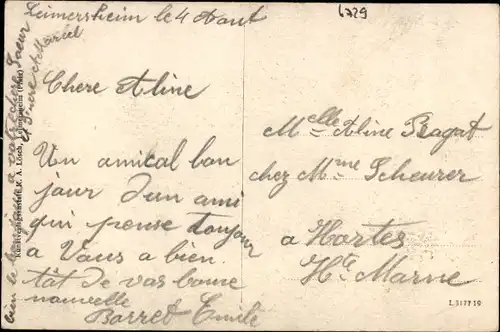 Leimersheim le 4 Aout
Chere Aline
Un amical bon
jour d'un ami
qui pense toujour
a Vous a bien
tât de vos bonne
nouvelle
Barret Emile
bien le bonjour a votre chere Soeur
et Marcel
Kunstverlagsanstalt K. A. Lösch, Leimersheim (Pfalz)
6729
Melle Aline Bagat
chez Mme Scheurer
a Hortes
Hte Marne
L 3177 19